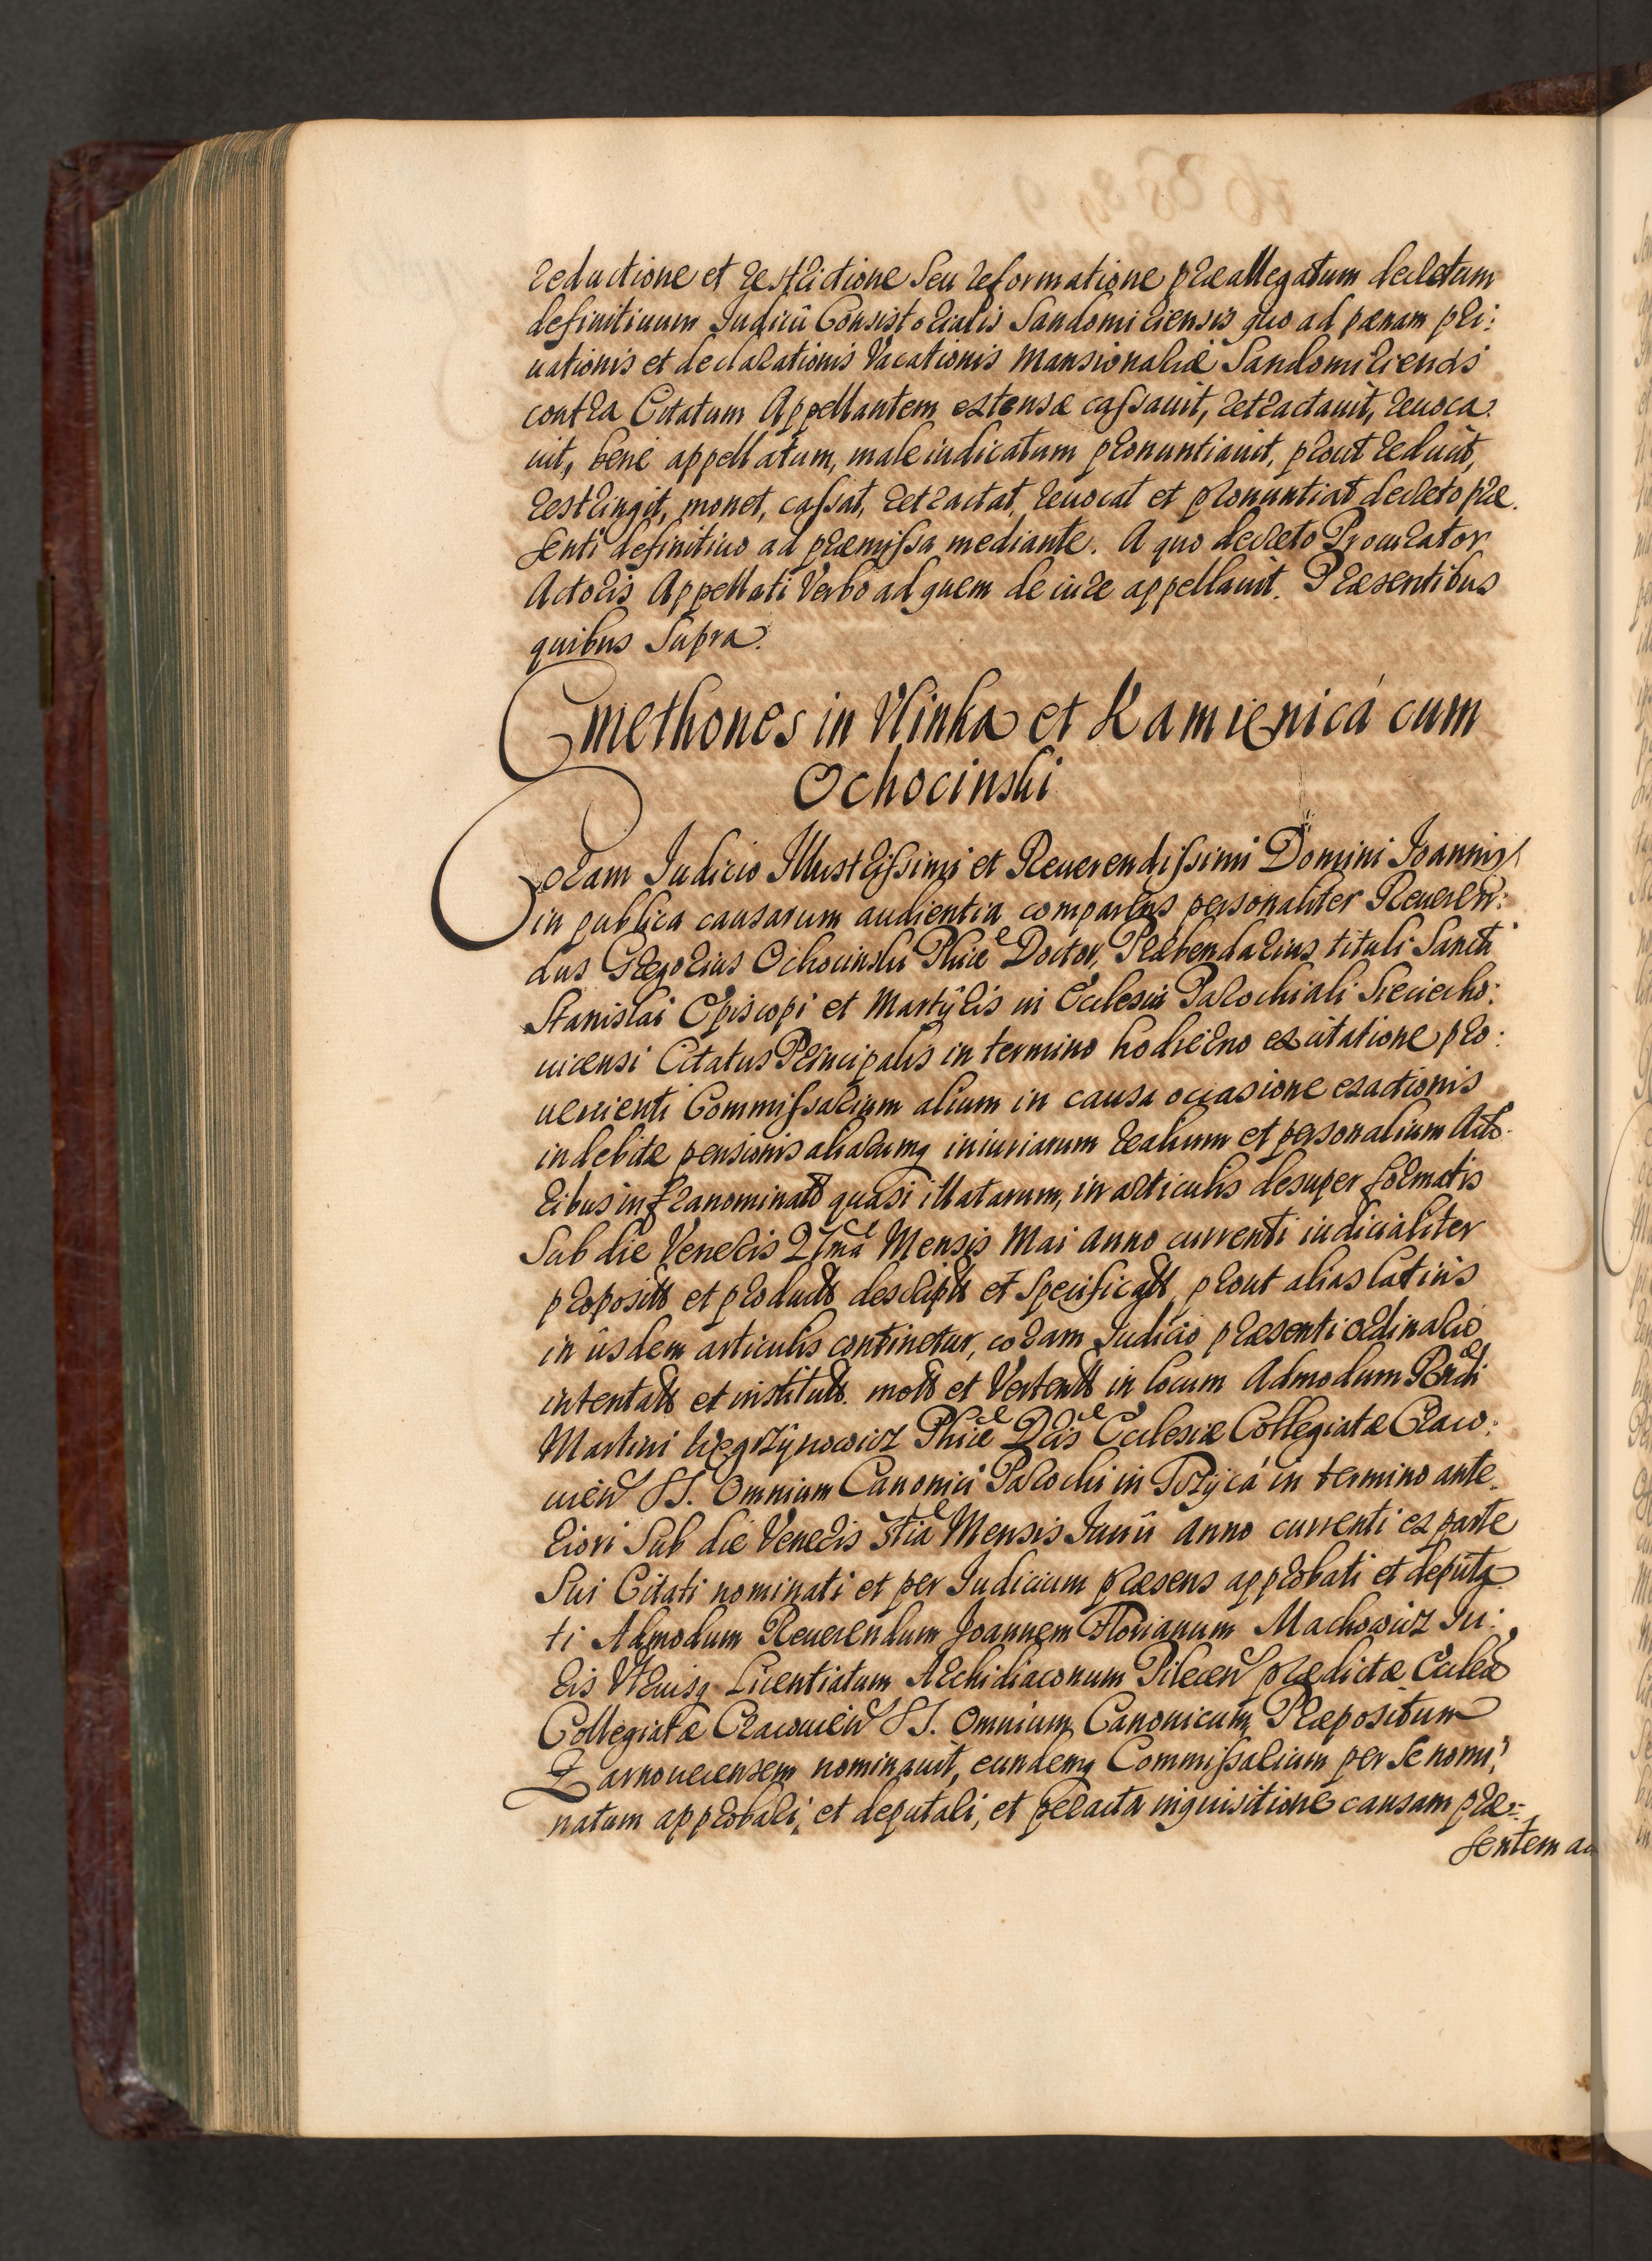 reductione et restrictione seu reformatione præallegatum decretum
definitiuum Iudicii Consistorialis Sandomiriensis quo ad pænam pri:
uationis et declarationis Vacationis Mansionariæ Sandomiriensis
contra Citatum Appellantem extensæ cassauit, retractauit, reuoca:
uit, bene appellatum, male iudicatum pronuntiauit, prout reducit,
restringit, monet, cassat, retractat, reuocat et pronuntiat decreto præ.
senti definitiuo ad præmissa mediante. A quo decreto Procurator
Actoris Appellati Verbo ad quem de iure appellauit. Præsentibus
quibus Supra.
Cmethones in Vlinka et Kamienica cum
Ochocinski
Coram Iudicio Illustrissimi et Reuerendissimi Domini Ioannis
in publica causarum audientia comparens personaliter Reueren:
dus Gregorius Ochocinski Phiæ Doctor, Præbendarius tituli Sancti
Stanislai Episcopi et Martÿris in Ecclesia Parochiali Sieciecho:
uicensi Citatus Principalis in termino hodierno ex citatione pro:
uenienti Commissarium alium in causa occasione exactionis
indebitæ pensionis aliarumq iniuriarum realium et personalium Acto:
ribus infranominatis quasi illatarum, in articulis desuper formatis
Sub die Veneris 27ma Mensis Mai Anno currenti iudicialiter
propositis et productis descriptis et specificatis, prout alias latius
in iisdem articulis continetur, coram Iudicio præsenti ordinario
intentatis et institutis motis et Vertentis in locum Admodum Rndi
Martini Węgrzÿnowicz Phiæ Dris Ecclesiæ Collegiatæ Craco:
uien SS. Omnium Canonici Parochi in Trzÿcá in termino ante.
riori Sub die Veneris 3tia Mensis Iunii Anno currenti ex parte
Sui Citati nominati et per Iudicium præsens approbati et deputa
ti Admodum Reuerendum Joannem Florianum Machowicz Iu:
ris Vtriusq Licentiatum Archidiaconum Pilecen prædictæ Eccleæ
Collegiatæ Cracouien SS. Omnium Canonicum, Præpositum
Zarnoueciensem nominauit, eundemq Commissarium per se nomi:
natum approbari, et deputari, et peracta inquisitione causam præ:
sentem